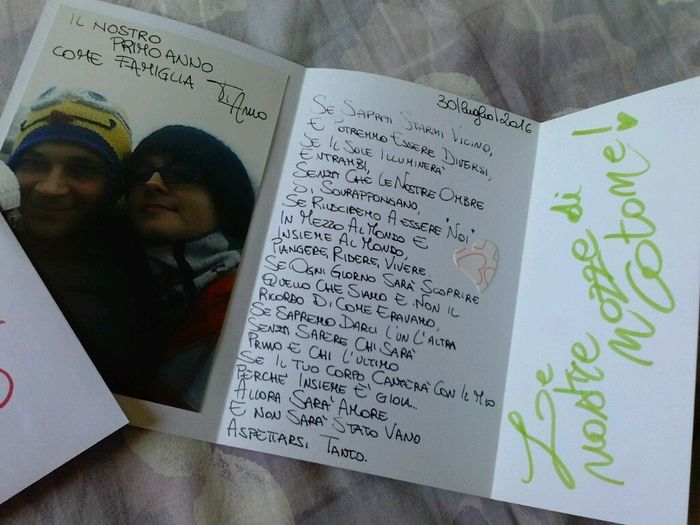 IL NOSTRO
PRIMO ANNO
COME FAMIGLIA
Ti Amo
30/luglio/2016
SE SAPRAI STARMI VICINO,
E POTREMO ESSERE DIVERSI,
SE IL SOLE ILLUMINERÀ
ENTRAMBI,
SENZA CHE LE NOSTRE OMBRE
DI SOVRAPPONGANO,
SE RIUSCIREMO A ESSERE "NOI"
IN MEZZO AL MONDO E
INSIEME AL MONDO,
PIANGERE, RIDERE, VIVERE.
SE OGNI GIORNO SARÀ SCOPRIRE
QUELLO CHE SIAMO E NON IL
RICORDO DI COME ERAVAMO,
SE SAPREMO DARCI L'UN L'ALTRA
SENZA SAPERE CHI SARÀ
PRIMO E CHI L'ULTIMO
SE IL TUO CORPO CANTERÀ CON IL MIO
PERCHÈ INSIEME È GIOIA...
ALLORA SARÀ AMORE
E NON SARÀ STATO VANO
ASPETTARSI TANTO.
Le
nostre nozze di
Cotone!